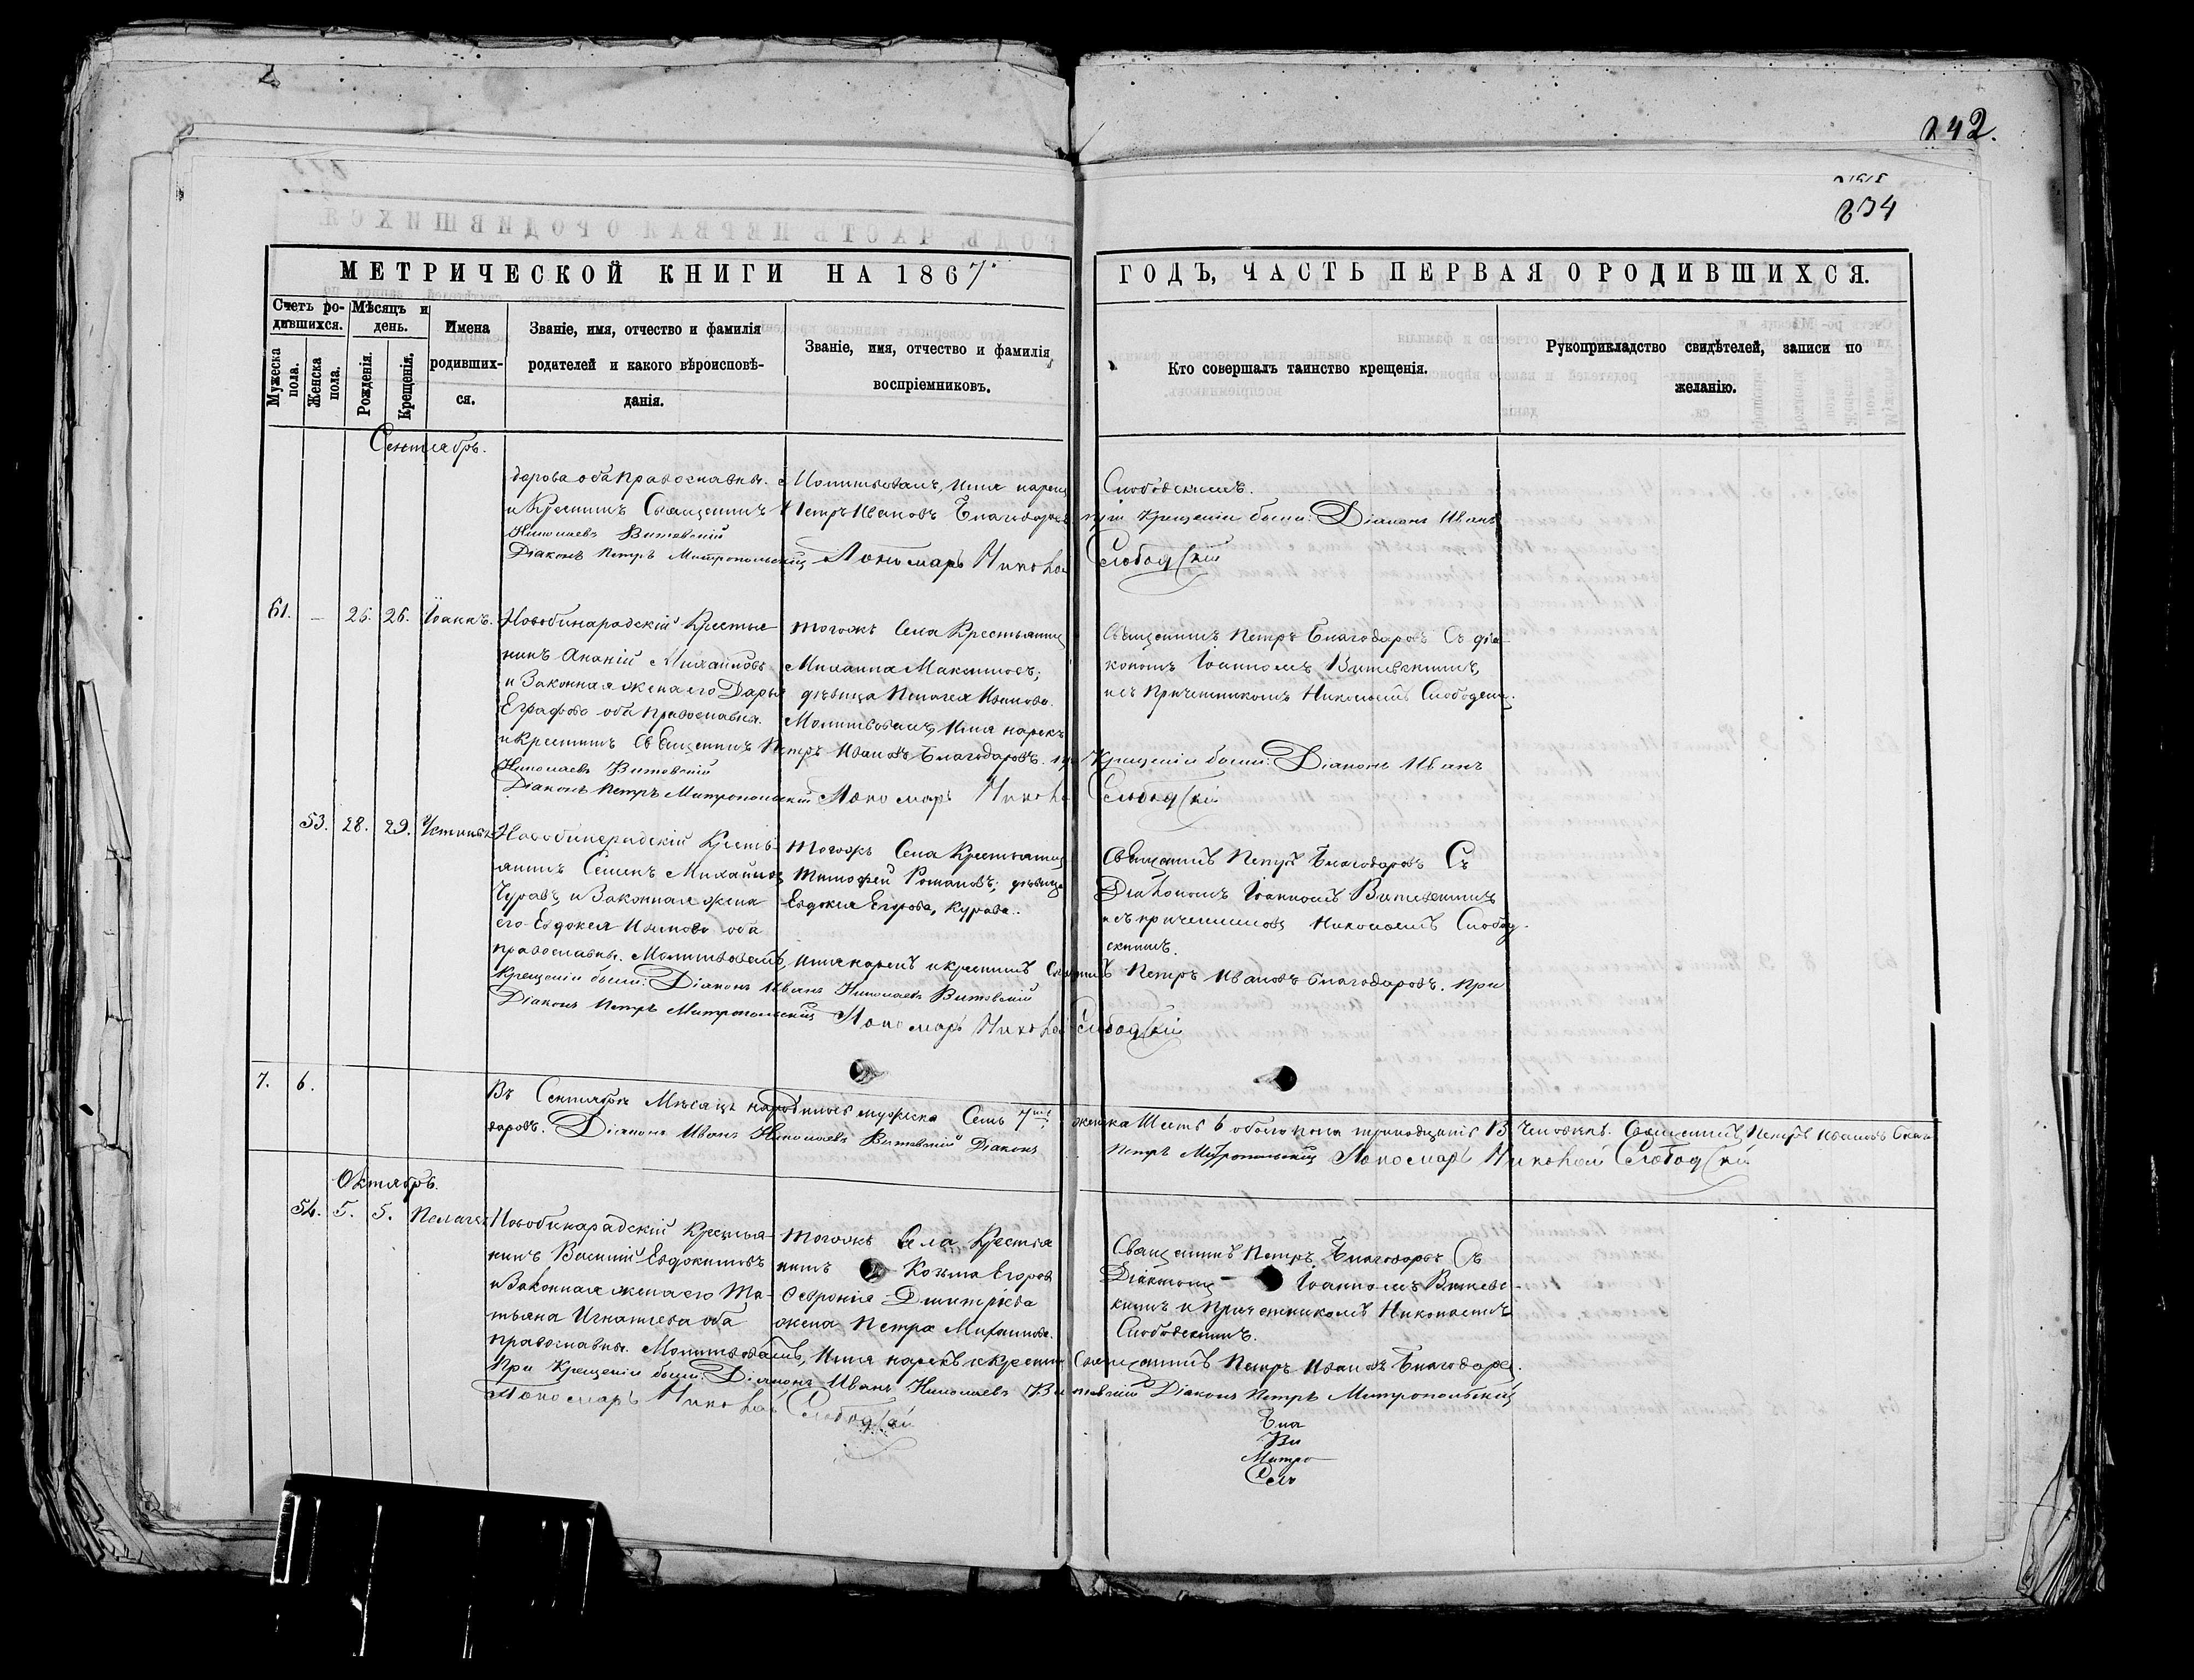 242.
234
МЕТРИЧЕСКОЙ КНИГИ НА 1867
ГОДЪ, ЧАСТЬ ПЕРВАЯ О РОДИВШИХСЯ.
Счетъ ро-
дившихся.
Мужеска пола.
Женска пола.
Мѣсяцъ и
день.
Рожденія.
Крещенія.
Имена
родивших-
ся.
Званіе, имя, отчество и фамилія
родителей и какого вѣроисповѣ-
данія.
Званіе, имя, отчество и фамилія
воспріемниковъ.
Кто совершалъ таинство крещенія.
Рукоприкладство свидѣтелей, записи по
желанію.
Сентябрь.
дорова оба православны. Молитвовалъ, имя нарекъ
и крестилъ Священникъ Петръ Ивановъ Благодаровъ при крещеніи были: Діаконъ Иванъ
Николаевъ Витевскій
Діаконъ Петръ Митропольскій Пономарь Николай Слободскій
Слободскимъ.
61. — 26. 26. Іоаннъ.
Новобинарадскій Крестья-
нинъ Ананій Михайловъ
и Законная жена его Дарья
Еграфова оба православны.
тогожъ Села Крестьянинъ
Михаила Максимовъ;
дѣвица Пелагея Иванова.
Молитвовалъ, имя нарекъ
и крестилъ Священникъ Петръ Ивановъ Благодаровъ. при Крещеніи были: Діаконъ Иванъ
Николаевъ Витевскій
Діаконъ Петръ Митропольскій Пономарь Николай Слободскій
Священникъ Петръ Благодаровъ Съ діа-
кономъ Іоанномъ Витевскимъ,
и съ Причетникомъ Николаемъ Слободск.
53. 28. 29.
Новобинарадскій Кресть-
янинъ Семенъ Михайловъ
и Законная жена
его Евдокея Иванова оба
православны. Молитвовалъ, имя нарекъ и крестилъ Священникъ Петръ Ивановъ Благодаровъ. При
Крещеніи были: Діаконъ Иванъ Николаевъ Витевскій
Діаконъ Петръ Митропольскій Пономарь Николай Слободскій
тогожъ Села Крестьянинъ
Тимофей Романовъ; дѣвица
Евдокея Егорова, Курова.
Священникъ Петръ Благодаровъ Съ
Діакономъ Іоанномъ Витевскимъ
и съ причетникомъ Николаемъ Слобод-
скимъ.
7. 6.
Въ Сентябрѣ Мѣсяцѣ народилось мужеска Семь 7 женска Шесть 6 обоего пола тринадцать 13 человѣкъ. Священникъ Петръ Ивановъ Благо-
даровъ. Діаконъ Иванъ Николаевъ Витевскій Діаконъ Петръ Митропольскій Пономарь Николай Слободскій
Октябрь.
54. 5. 5. Пелагея
Новобинарадскій Крестья-
нинъ Василій Евдокимовъ
и Законная жена его Та-
тьяна Игнатьева оба
православны. Молитвовалъ, имя нарекъ и крестилъ Священникъ Петръ Ивановъ Благодаровъ.
При Крещеніи были: Діаконъ Иванъ Николаевъ Витевскій Діаконъ Петръ Митропольскій
Пономарь Николай Слободскій
тогожъ Села Крестья
нинъ Козьма Егоровъ
Февронія Дмитріева
жена Петра Михайлова.
Священникъ Петръ Благодаровъ Съ
Діакономъ — Іоанномъ Витевс-
кимъ и Причетникомъ Николаемъ
Слободскимъ.
Бла
Ви
Митро
Сло